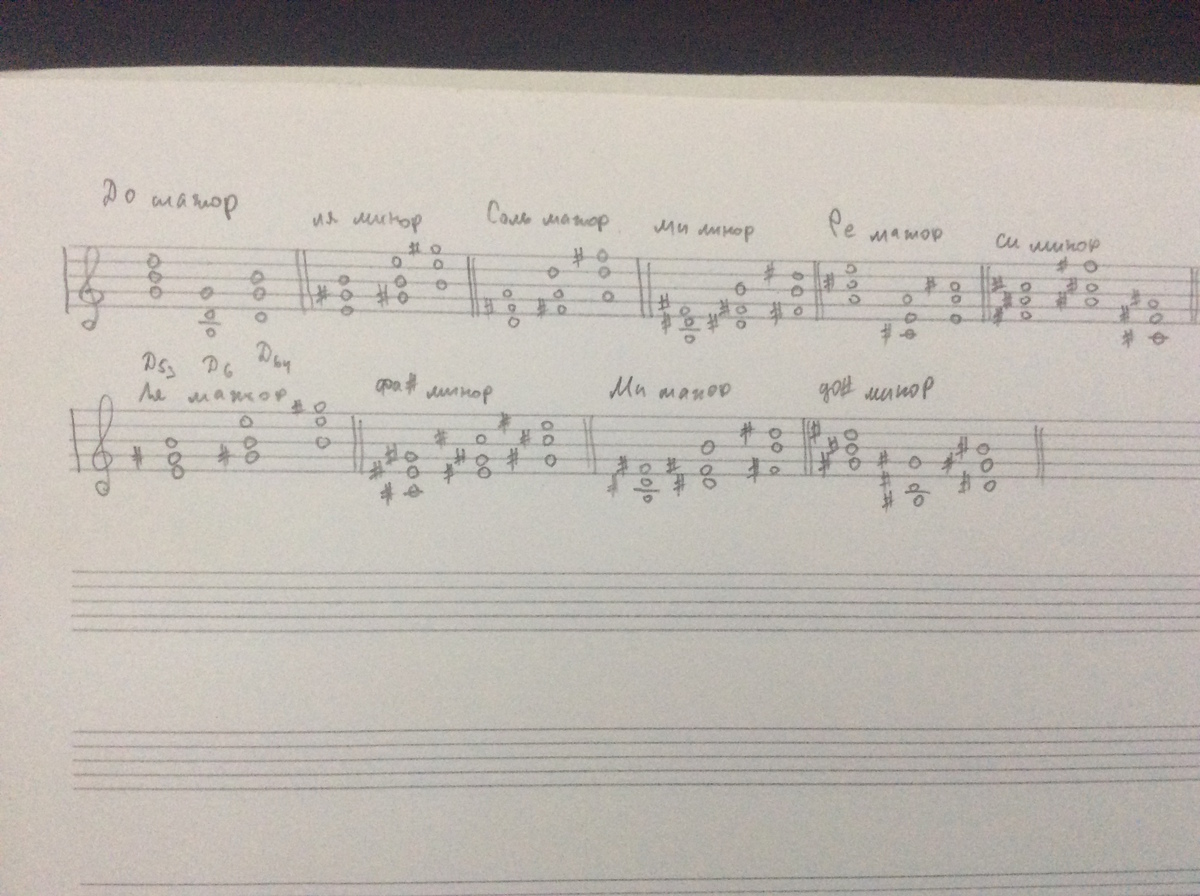 До мажор ля минор Соль мажор ми минор Ре мажор си минор
D53 D6 D64
Ля мажор фа# минор Ми мажор до# минор